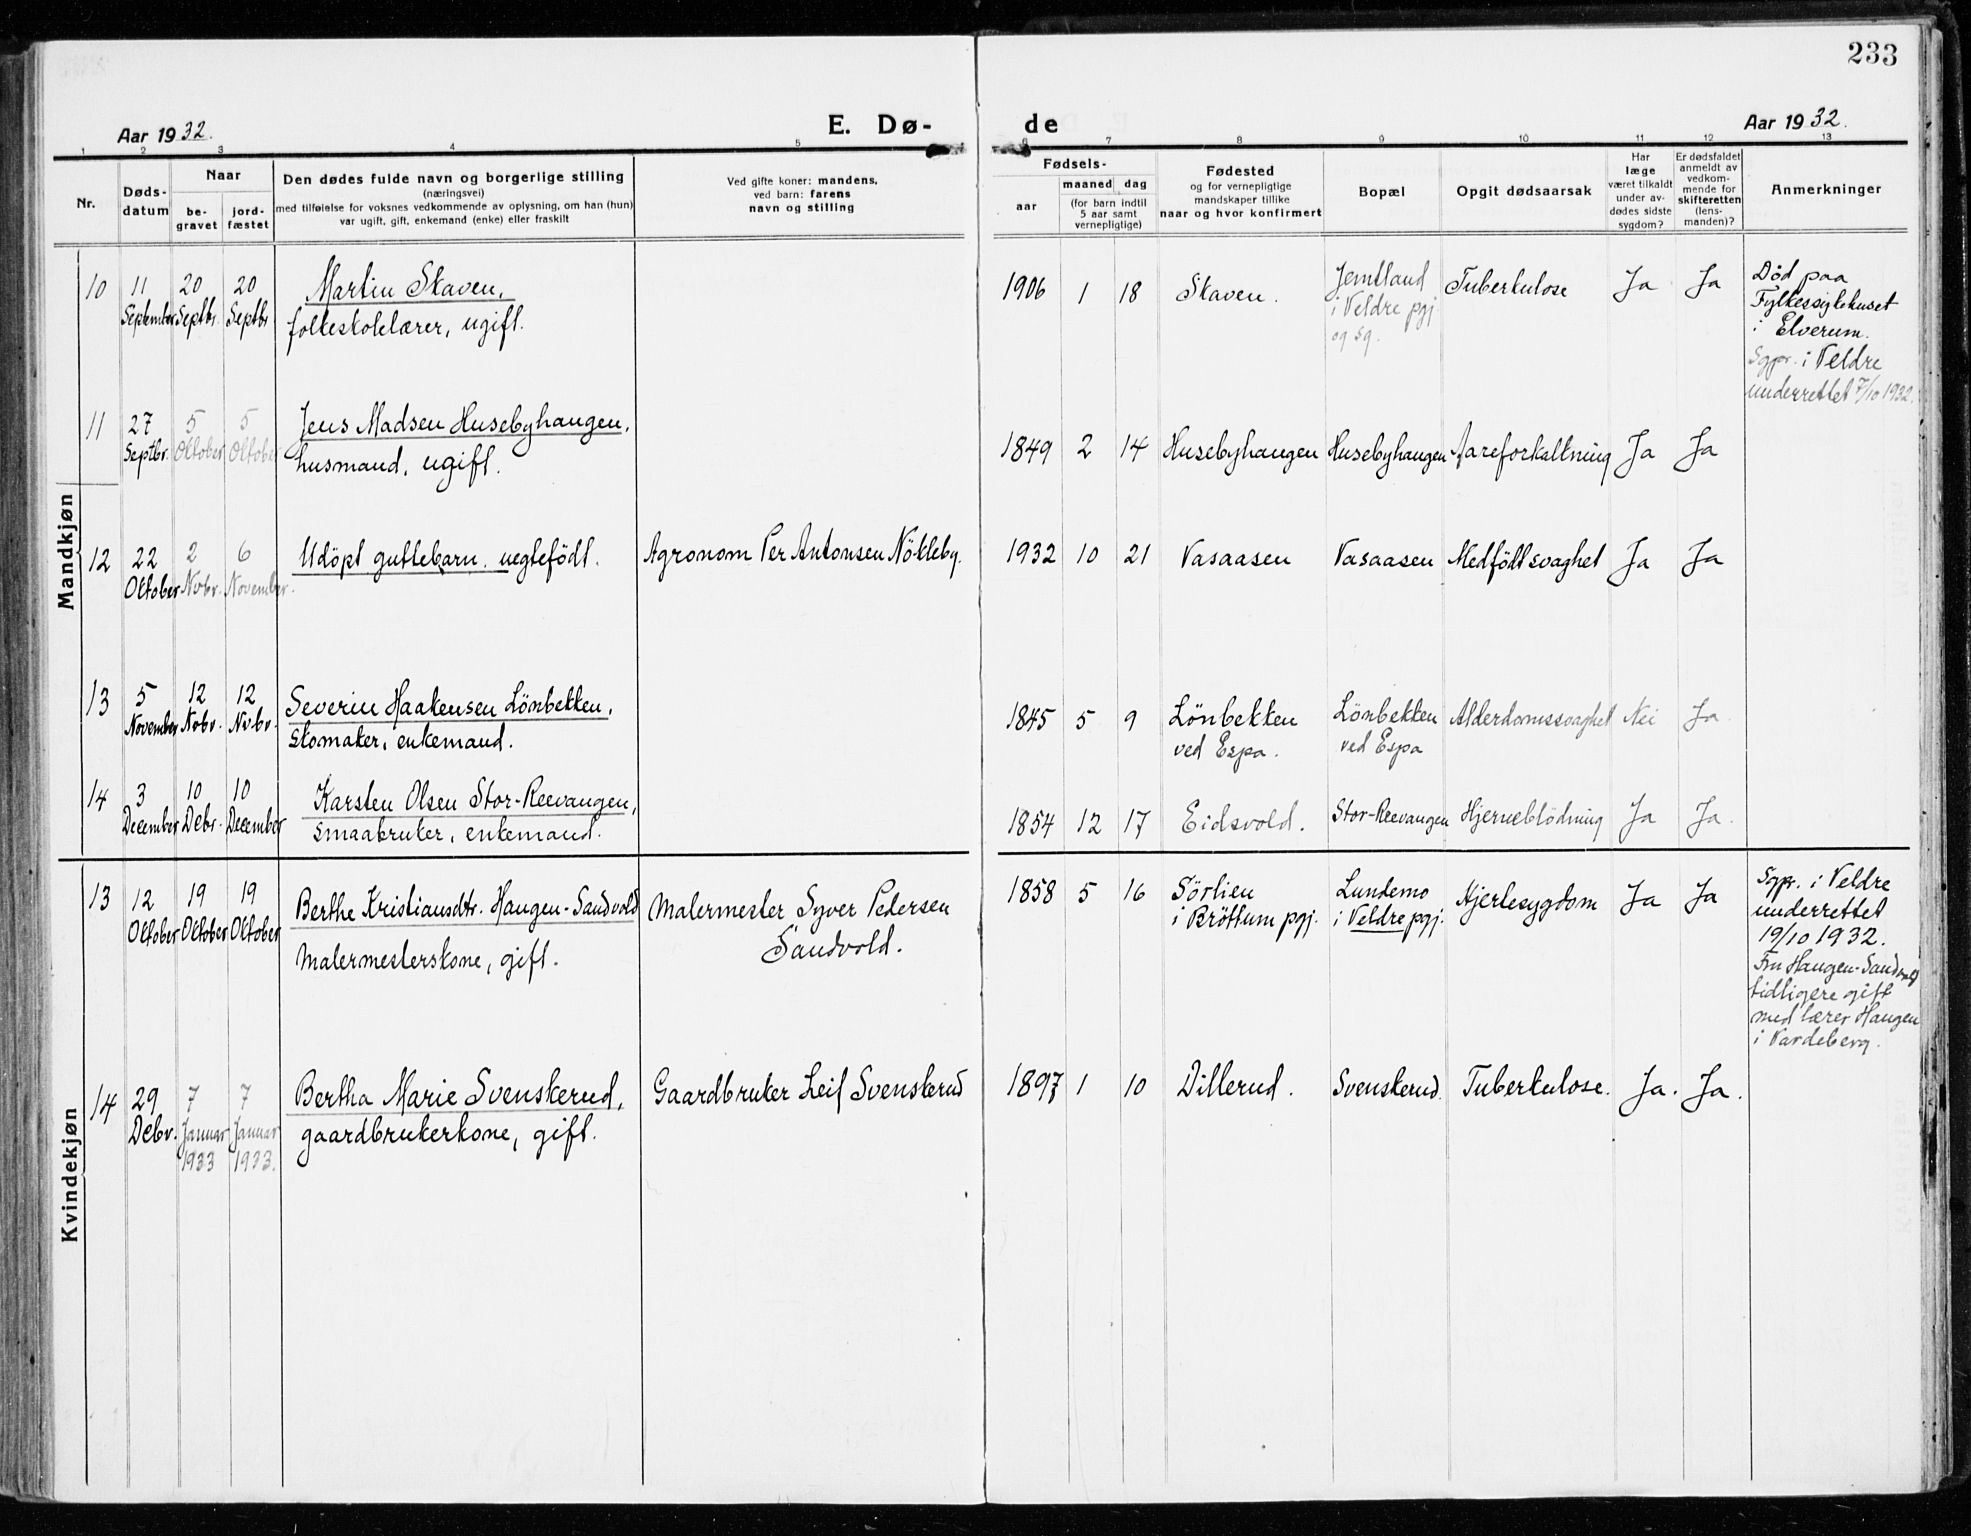 233
Aar 1932.
E. Dø-
de
Aar 1932.
1 2 3 4 5 6 7 8 9 10 11 12 13
Nr.
Døds-
datum
Naar
be-
gravet
jord-
fæstet
Den dødes fulde navn og borgerlige stilling
(næringsvei)
med tilføielse for voksnes vedkommende av oplysning, om han (hun)
var ugift, gift, enkemand (enke) eller fraskilt
Ved gifte koner: mandens,
ved barn: farens
navn og stilling
Fødsels-
aar
maaned dag
(for barn indtil
5 aar samt
vernepligtige)
Fødested
og for vernepligtige
mandskaper tillike
naar og hvor konfirmert
Bopæl
Opgit dødsaarsak
Har
læge
været tilkaldt
under av-
dødes sidste
sygdom?
Er dødsfaldet
anmeldt av
vedkom-
mende for
skifteretten
(lens-
manden)?
Anmerkninger
Mandkjøn
10
11
September
20
Septbr.
20
Septbr
Martin Skaven,
folkeskolelærer, ugift.
1906 1 18 Skaven.
Jemtland
i Veldre pgj
og sg.
Tuberkulose
Ja
Ja
Død paa
Fylkessykehuset
i Elverum.
Sgpr. i Veldre
underrettet 7/10 1932.
11
27
Septbr.
5
Oktober
5
Oktober
Jens Madsen Husebyhaugen,
husmand, ugift.
1849 2 14 Husebyhaugen Husebyhaugen Aareforkaltning Ja Ja
12
22
Oktober
2
Novbr.
6
November.
Udöpt guttebarn. uegtefödt.
Agronom Per Antonsen Nökleby.
1932 10 21 Vasaasen Vasaasen Medfödt svaghet Ja Ja
13
5
November
12
Novbr.
12
Novbr.
Severin Haakensen Lönbekken,
skomaker, enkemand.
1845 5 9
Lönbekken
ved Espa.
Lönbekken
ved Espa
Alderdomssvaghet Nei Ja
14
3
December
10
Debr.
10
December
Karsten Olsen Stor-Reevangen,
smaabruker, enkemand.
1854 12 17 Eidsvold. Stor-Reevangen Hjerneblödning Ja Ja.
Kvindekjøn
13
12
Oktober
19
Oktober
19
Oktober
Berthe Kristiansdtr. Haugen-Sandvold
malermesterskone, gift.
Malermester Syver Pedersen
Sandvold.
1858 5 16
Sörlien
i Bröttum pgj.
Lundemo
i Veldre pgj.
Hjertesygdom Ja Ja
Sgpr. i Veldre
underrettet
19/10 1932.
Fru Haugen-Sandvold
tidligere gift
med lærer Haugen
i Vardeberg.
14
29
Debr.
7
Januar
1933
7
Januar
1933.
Bertha Marie Svenskerud,
gaardbrukerkone, gift.
Gaardbruker Leif Svenskerud
1897 1 10 Dillerud. Svenskerud. Tuberkulose. Ja. Ja.